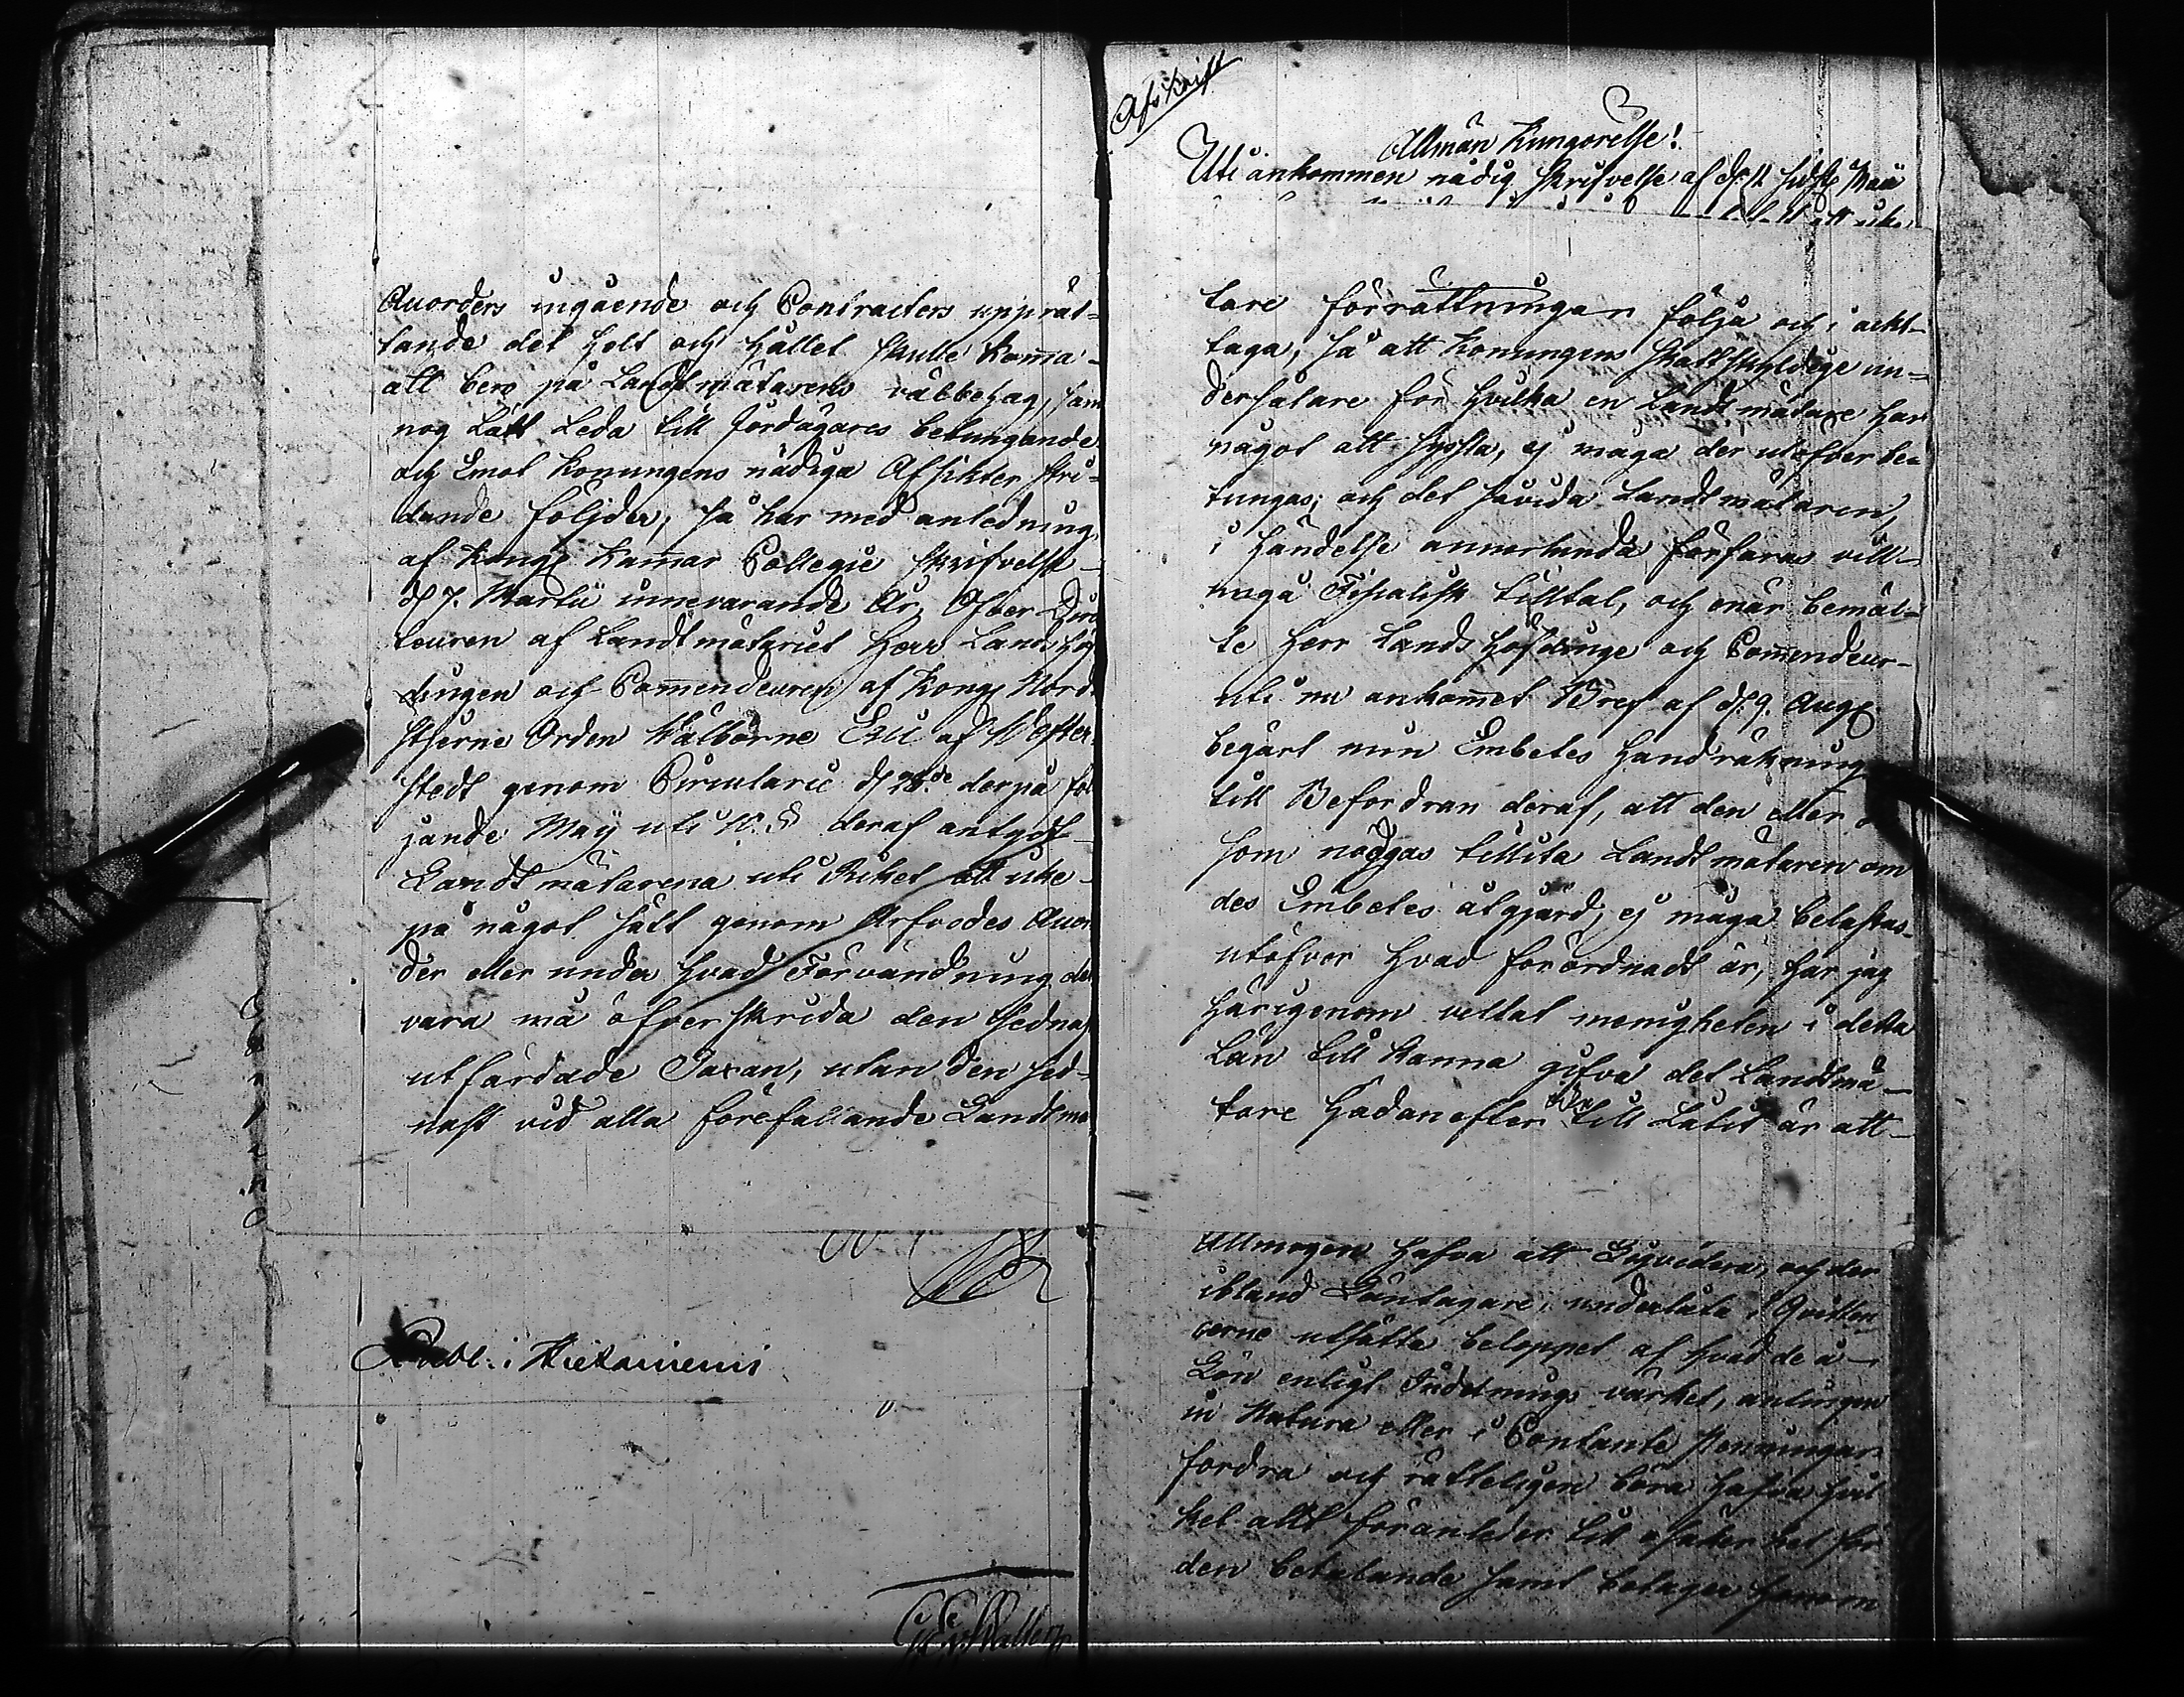 Auorders ingående och Contracters upprät-
tande det Holt och hållet skulle kom̄a
att bero på Landtmätarens välbehag, som
nog Lätt Leda till Jordägares betungande
och Emot Konungens nådiga Afsikter stri-
dande följder; så har med anledning
af Kongl Kam̄ar Collegii skrifvelse
d 7. Martii innevarande År, Öfver Direc
teuren af Landtmäteriet Herr Landshöf
dingen och Com̄endeuren af Kongl Nord
stjerne Orden Wälborne Eric af Wetter
stedt genom Circulaire d 28.de derpå föl
jande Maÿ uti 10. § deraf antydt
Landtmätarena uti Riket att icke
på något sätt genom Arfvodes Auor
der eller under hvad Förvändning det
vara må öfverskrida den sednast
utfärdade Taxan, utan den sed-
nast vid alla förefallande Landtmä
Publ: i Hietaniemi
Afskrift
Allmän Kungörelse!
Uti ankommen nådig skrifvelse af d. 11 sidstl Maii
tare förrättningar följa och i ackt-
taga, så att Konungens skattskyldige un-
dersåtare för hvilka en Landtmätare har
något att syssla, ej måga der utöfver be-
tungas; och det såvida Landtmätaren,
i händelse annorlunda förfaras vill
undgå Fiscalisk tilltal, och enär bemäl-
te Herr Landshöfdinge och Com̄endeur
uti nu ankom̄et Bref af d. 9. Augl
begärt min Embetes Handräkning
till Befordran deraf, att den eller
som nödgas tillita Landtmätaren om
des Embetes åtgjärd, ej måga belastas
utöfver hvad förordnadt är, har jag
härigenom vellat menigheten i detta
Län till kanna gifva det Landtmä-
tare hädanefter icke till Låtit är att
Allmogen hafva att Liqvidera, och der
ibland Läntagare, underlåta i Quitten
cerne utsätta beloppet af hvad de i
Lön enligt Indelnings värket, antingen
in Natura eller i Contante Penningar
fordra och rätteligen böra hafva hvil
ket allt föranleder till osäkerhet för
den betalande samt betager honom